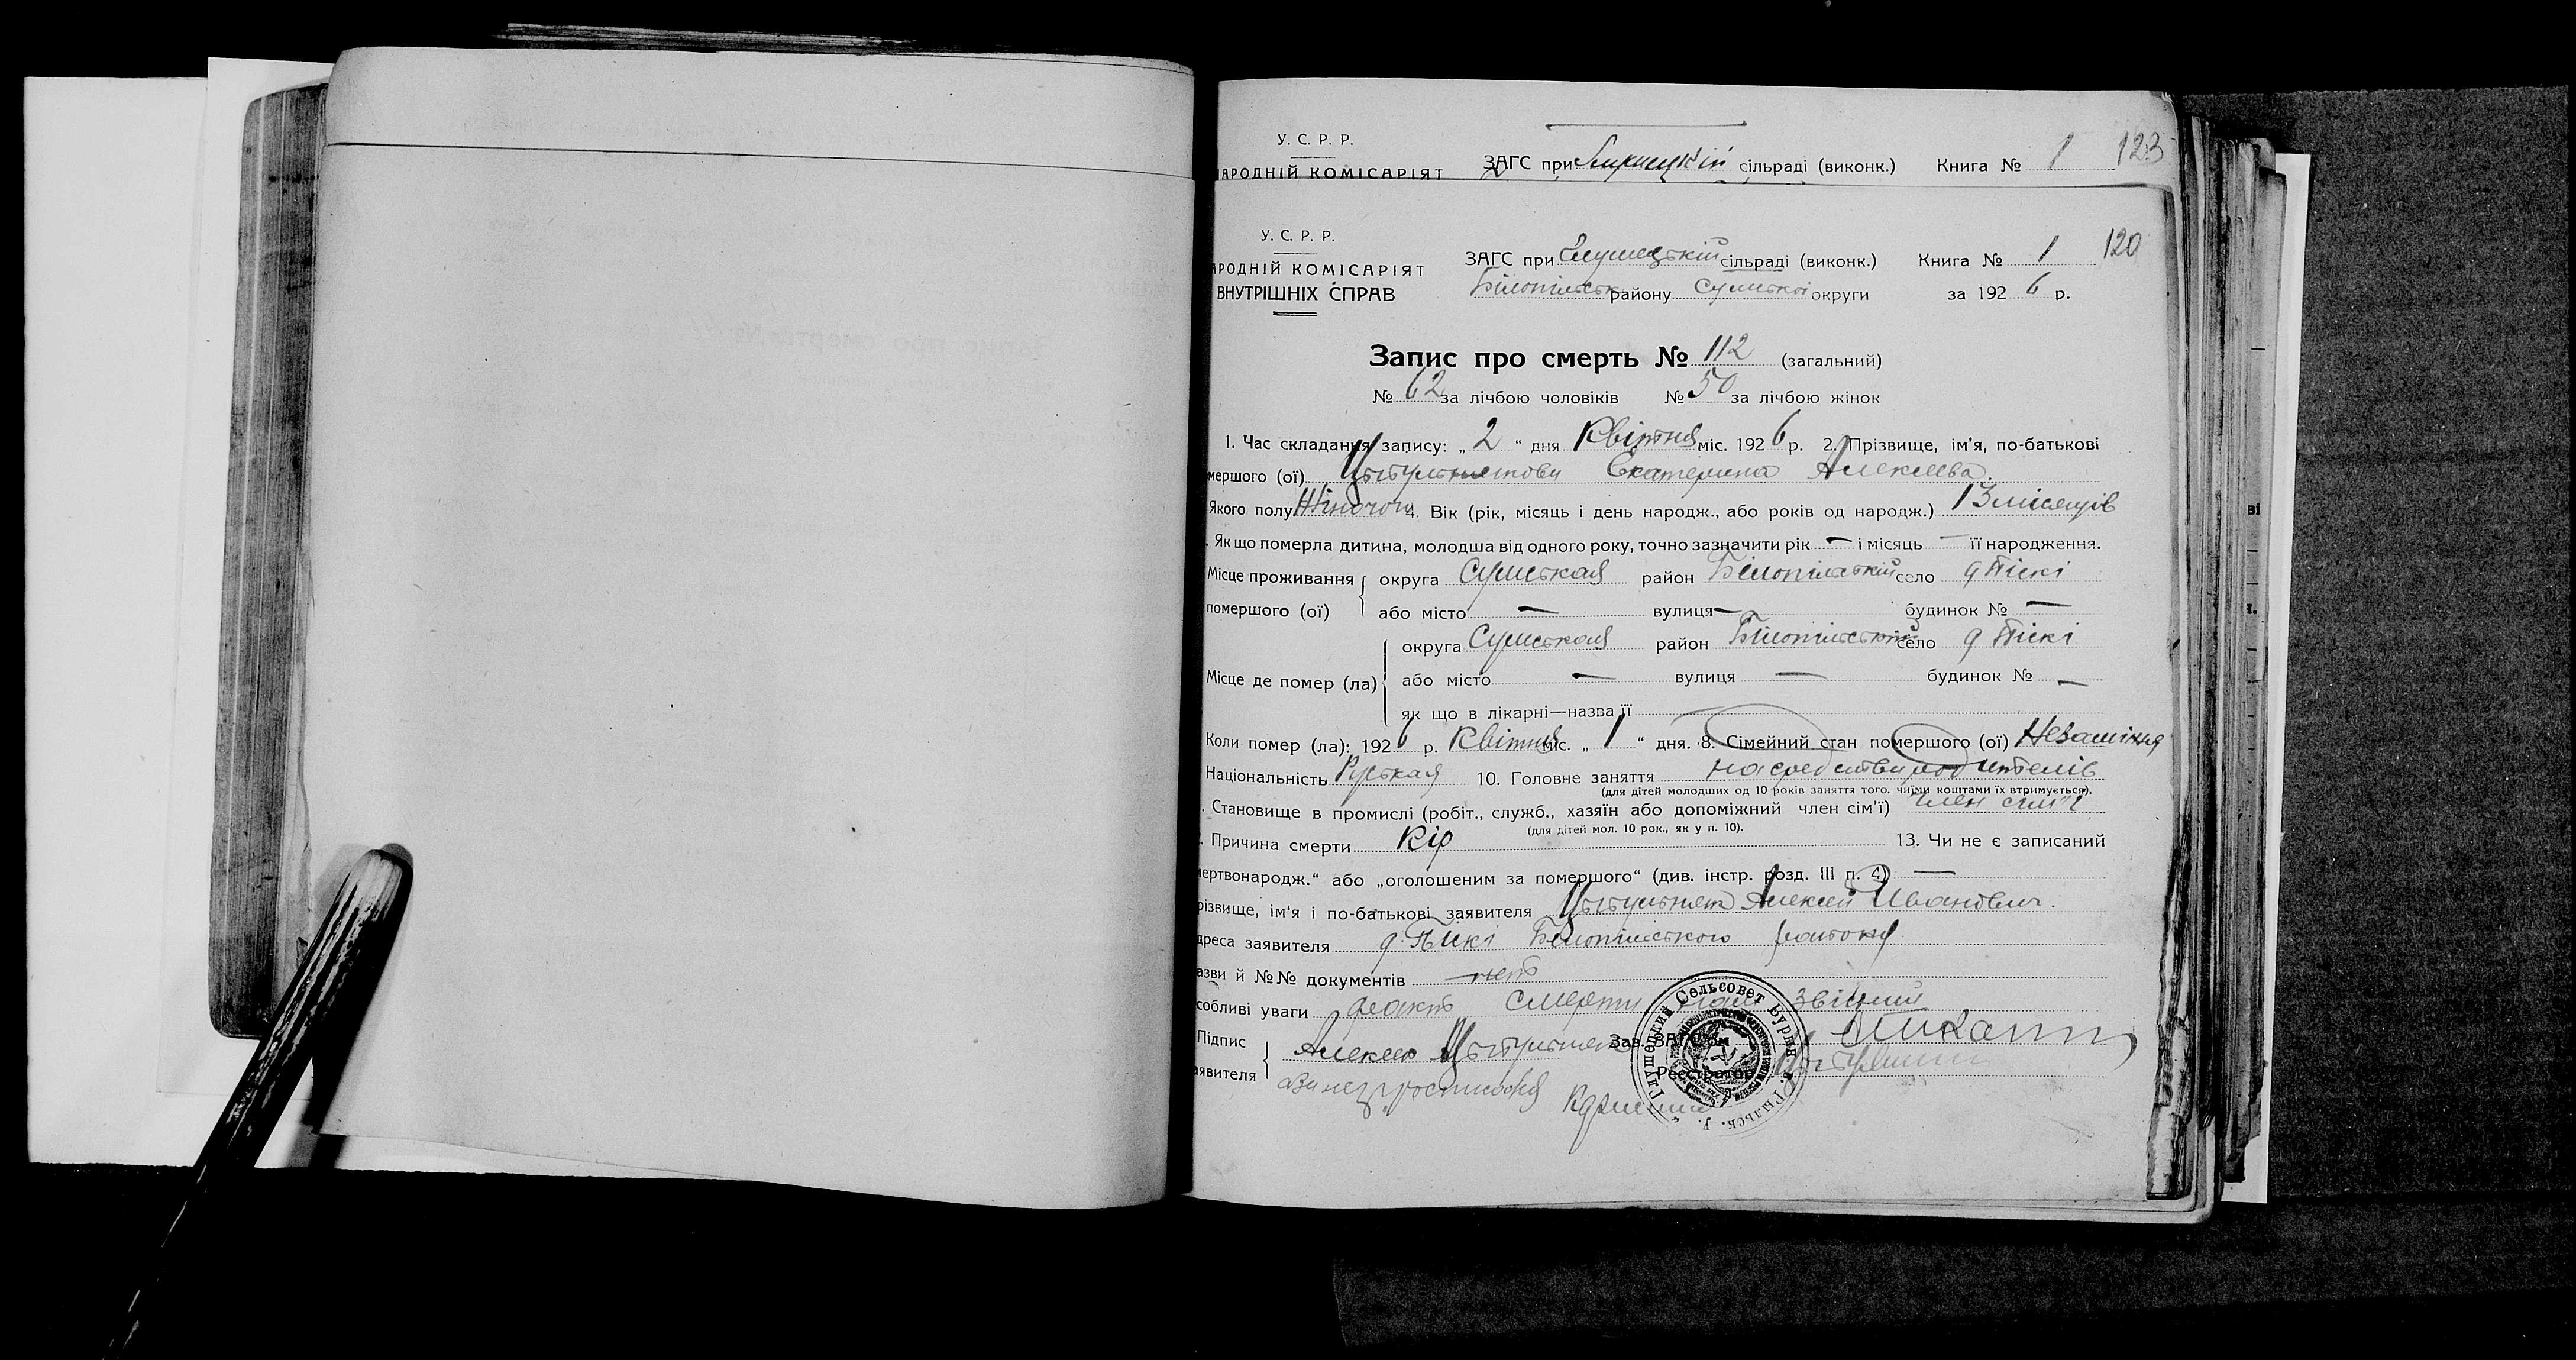 У. С. Р. Р.
АРОДНІЙ КОМІСАРІЯТ ЗАГС при сільраді (виконк.) Книга № 1 123
У. С. Р. Р.
АРОДНІЙ КОМІСАРІЯТ ЗАГС при сільраді (виконк.) Книга № 1 120
ВНУТРІШНІХ СПРАВ Білопільск району Сумської округи за 1926 р.
Запис про смерть № 112 (загальний)
№ 62 за лічбою чоловіків № 50 за лічбою жінок
1. Час складання запису: „2“ дня Квітня міс. 1926 р. 2. Прізвище, ім’я, по-батькові
мершого (ої) Екатерина Алексеева
Якого полу Жіночого 4. Вік (рік, місяць і день народж., або років од народж.) 13 місяців
. Як що померла дитина, молодша від одного року, точно зазначити рік — і місяць — її народження.
Місце проживання округа Сумськая район Білопільський село д Піскі
помершого (ої) або місто — вулиця — будинок № —
округа Сумськая район Білопільський село д Піскі
Місце де помер (ла) або місто — вулиця — будинок № —
як що в лікарні—назва її
Коли помер (ла): 1926 р. Квітня міс. „1“ дня. 8. Сімейний стан помершого (ої)
Національність Руськая 10. Головне заняття на средства родителів
(для дітей молодших од 10 років заняття того, чиїми коштами їх втримується).
. Становище в промислі (робіт., служб., хазяїн або допоміжний член сім’ї) член сім’ї
(для дітей мол. 10 рок., як у п. 10).
. Причина смерти Кір 13. Чи не є записаний
ертвонародж.“ або „оголошеним за помершого“ (див. інстр. розд. III п. 4) —
різвище, ім’я і по-батькові заявителя Алексей Иванович.
дреса заявителя д. Піскі Білопільського району
азви й №№ документів нет
собливі уваги факт смерти нам звісний
Підпис Алексей Зав. ЗАГСом
аявителя Реєстратор
Глушецкий Сельсовет Бурын. в. Рыльск. у.